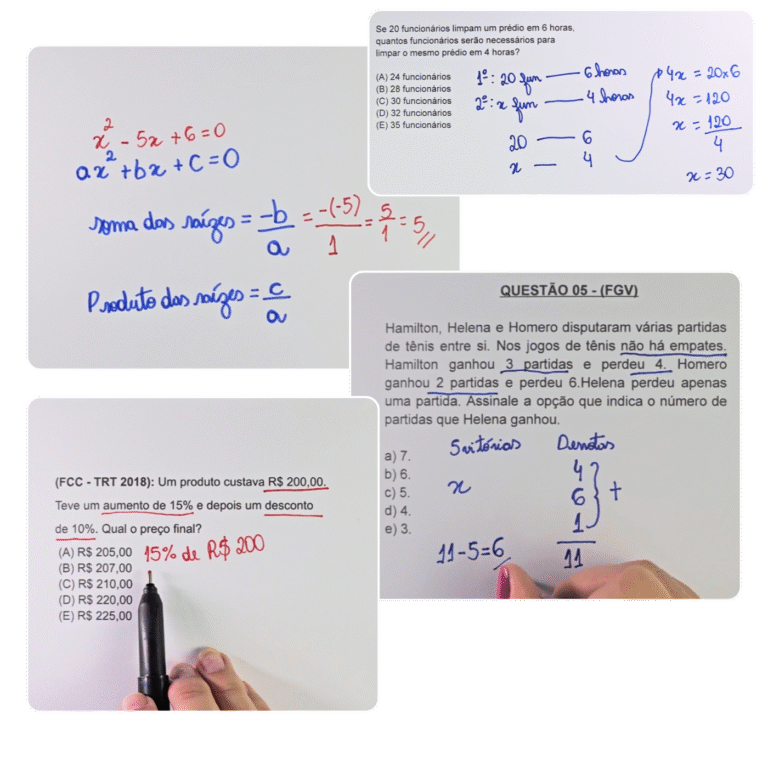 x² - 5x + 6 = 0
ax² + bx + c = 0
soma das raízes = -b/a = -(-5)/1 = 5/1 = 5//
Produto das raízes = c/a
Se 20 funcionários limpam um prédio em 6 horas,
quantos funcionários serão necessários para
limpar o mesmo prédio em 4 horas?
(A) 24 funcionários
(B) 28 funcionários
(C) 30 funcionários
(D) 32 funcionários
(E) 35 funcionários
1º: 20 fun — 6 horas
2º: x fun — 4 horas
20 — 6
x — 4
4x = 20x6
4x = 120
x = 120/4
x = 30
QUESTÃO 05 - (FGV)
Hamilton, Helena e Homero disputaram várias partidas
de tênis entre si. Nos jogos de tênis não há empates.
Hamilton ganhou 3 partidas e perdeu 4. Homero
ganhou 2 partidas e perdeu 6.Helena perdeu apenas
uma partida. Assinale a opção que indica o número de
partidas que Helena ganhou.
a) 7.
b) 6.
c) 5.
d) 4.
e) 3.
5 vitórias
x
11-5=6
Derrotas
4
6
1
+
11
(FCC - TRT 2018): Um produto custava R$ 200,00.
Teve um aumento de 15% e depois um desconto
de 10%. Qual o preço final?
(A) R$ 205,00
(B) R$ 207,00
(C) R$ 210,00
(D) R$ 220,00
(E) R$ 225,00
15% de R$ 200